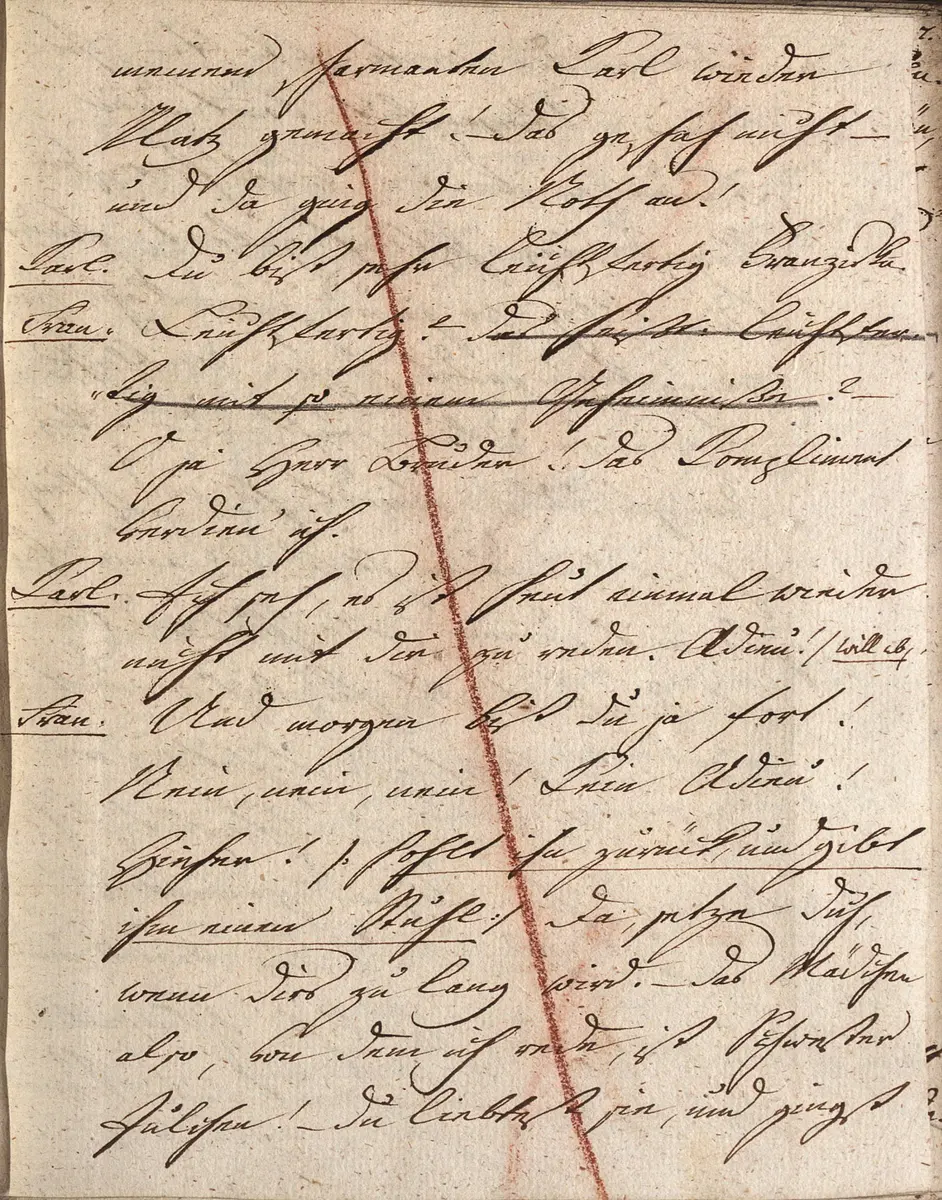 meinem scharmanten Karl wieder
Platz gemacht! – das geschah nicht –
und da ging die Noth an!
Karl. Du bist sehr leichtfertig Franziska
Fran: Leichtfertig? das heißt: leichtfer„
„tig mit so einem Geheimniße? –
O ja Herr Bruder! das Kompliment
verdien' ich.
Karl. Ich seh, es ist heut einmal wieder
nicht mit dir zu reden. Adieu! / will ab,
Fran: Und morgen bist du ja fort!
Nein, nein, nein! Kein Adieu!
Hieher! /: hohlt ihn zurück, und gibt
ihm einen Stuhl :/ Da, setze dich,
wenn dirs zu lang wird. – das Mädchen
also, von dem ich rede, ist Schwester
Julchen! – Du liebtest sie, und gingst